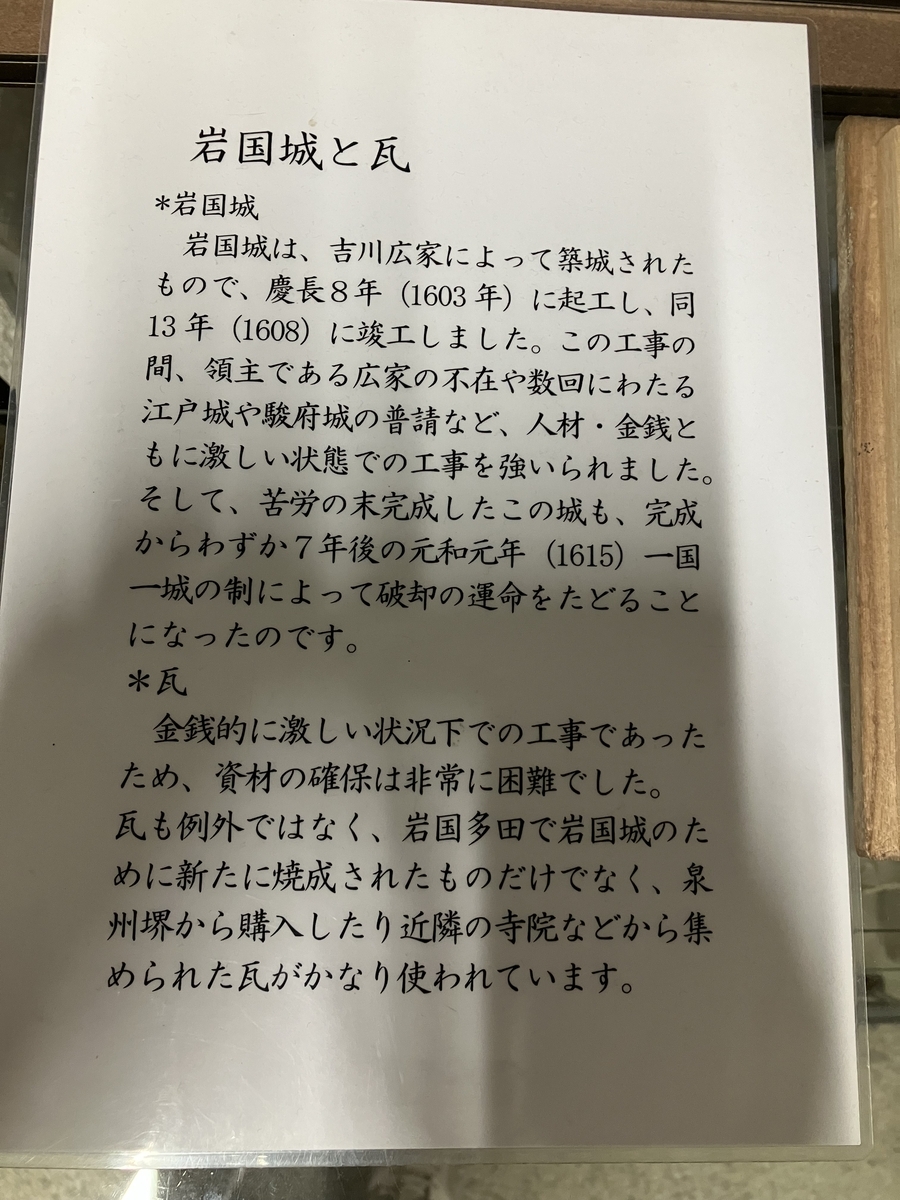 岩国城と瓦
*岩国城
岩国城は、吉川広家によって築城された
もので、慶長8年（1603年）に起工し、同
13年（1608）に竣工しました。この工事の
間、領主である広家の不在や数回にわたる
江戸城や駿府城の普請など、人材・金銭と
もに激しい状態での工事を強いられました。
そして、苦労の末完成したこの城も、完成
からわずか7年後の元和元年（1615）一国
一城の制によって破却の運命をたどること
になったのです。
*瓦
金銭的に激しい状況下での工事であった
ため、資材の確保は非常に困難でした。
瓦も例外ではなく、岩国多田で岩国城のた
めに新たに焼成されたものだけでなく、泉
州堺から購入したり近隣の寺院などから集
められた瓦がかなり使われています。